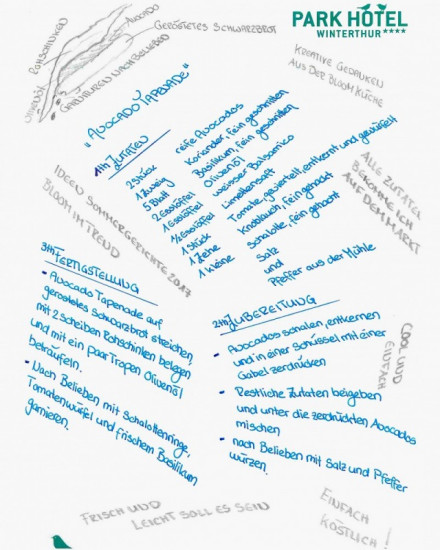 PARK HOTEL
WINTERTHUR ****
AVOCADO
GERÖSTETES SCHWARZBROT
ROHSCHINKEN
OLIVENÖL
GARNITUREN NACH BELIEBEN
KREATIVE GEDANKEN
AUS DER BLOOM KÜCHE
"AVOCADO TAPENADE"
1th ZUTATEN
2 Stück reife Avocados
1 Zweig Koriander, fein geschnitten
5 Blatt Basilikum, fein geschnitten
2 Esslöffel Olivenöl
1 Esslöffel weisser Balsamico
1/2 Esslöffel Limettensaft
1 Stück Tomate, geviertelt, entkernt und gewürfelt
1 Zehe Knoblauch, fein gehackt
1 kleine Schalotte, fein gehackt
Salz
und
Pfeffer aus der Mühle
ALLE ZUTATEN
BEKOMME ICH
AUF DEM MARKT
IDEEN SOMMERGERICHTE 2017
BLOOM IM TREND
3th FERTIGSTELLUNG
- Avocado Tapenade auf
geröstetes Schwarzbrot streichen
mit 2 Scheiben Rohschinken belegen
und mit ein paar Tropfen Olivenöl
beträufeln.
- Nach Belieben mit Schalottenringe,
Tomatenwürfel und frischem Basilikum
garnieren.
2th ZUBEREITUNG
- Avocados schälen, entkernen
und in einer Schüssel mit einer
Gabel zerdrücken
- Restliche Zutaten beigeben
und unter die zerdrückten Avocados
mischen
- nach Belieben mit Salz und Pfeffer
würzen.
COOL UND
EINFACH
FRISCH UND
LEICHT SOLL ES SEIN
EINFACH
KÖSTLICH!